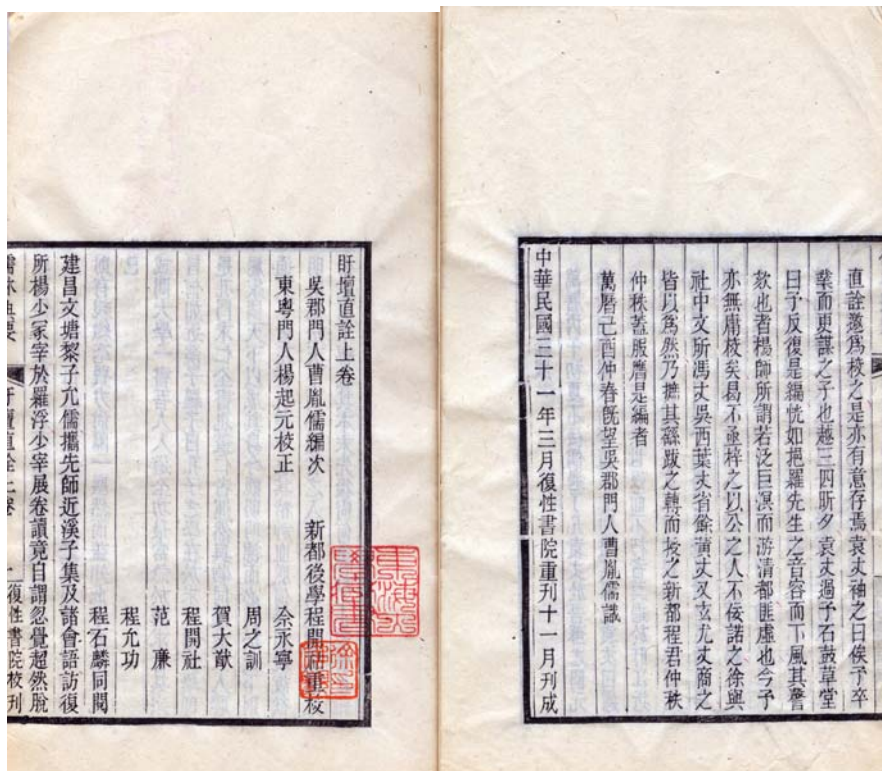 直詮邀爲校之是亦有意存焉袁丈袖之曰俟予卒
業而更謀之子也越三四昕夕袁丈過予石鼓草堂
曰予反復是編恍如挹羅先生之音容而下風其謦
欬也者楊師所謂若泛巨溟而游清都匪虛也今予
亦無庸校矣曷不亟梓之以公之人不佞諾之徐與
社中文所馮丈吳西葉丈省餘黃丈又玄尤丈商之
皆以爲然乃摭其繇跋之轉而授之新都程君仲秩
仲秩蓋服膺是編者
萬曆己酉仲春旣望吳郡門人曹胤儒識
中華民國三十一年三月復性書院重刊十一月刊成
盱壇直詮上卷
吳郡門人曹胤儒編次 新都後學程開祜重校
東粵門人楊起元校正 佘永寧
周之訓
賀大猷
程開社
范 廉
程允功
程石麟同閱
建昌文塘黎子允儒攜先師近溪子集及諸會語訪復
所楊少冢宰於羅浮少宰展卷讀竟自謂忽覺超然脫
儒林典要 盱壇直詮上卷 一 復性書院校刊